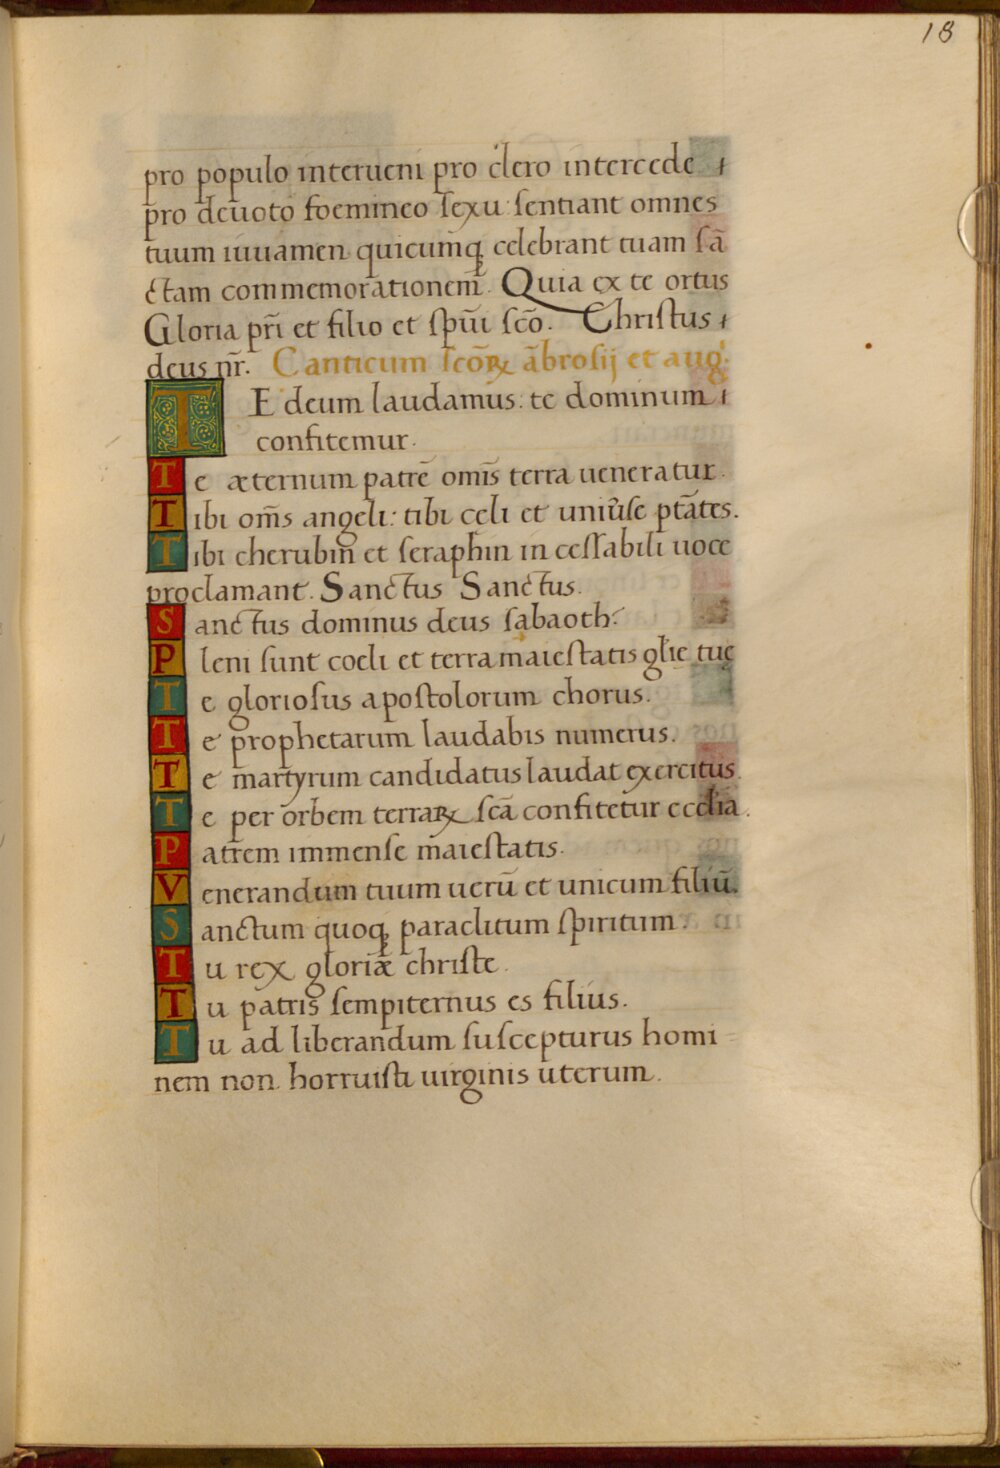 18
pro populo interueni pro clero intercede
pro deuoto foemineo sexu: sentiant omnes
tuum iuuamen quicumq; celebrant tuam sā
ctam commemorationem. Quia ex te ortus
Gloria pr̄i et filio et sp̄ui sc̄o. Christus
deus nr̄. Canticum sc̄oꝝ ābrosij et aug:
TE deum laudamus: te dominum
confitemur.
Te æternum patrē om̄is terra ueneratur.
Tibi om̄s angeli: tibi cęli et uniūse pt̄ates.
Tibi cherubin et seraphin incessabili uoce
proclamant. Sanctus Sanctus.
Sanctus dominus deus sabaoth.
Pleni sunt coeli et terra maiestatis gl̄ie tuę
Te gloriosus apostolorum chorus.
Te prophetarum laudabis numerus.
Te martyrum candidatus laudat exercitus.
Te per orbem terraꝝ sc̄a confitetur eccl̄ia.
Patrem immense maiestatis.
Venerandum tuum uerū et unicum filiū.
Sanctum quoq; paraclitum spiritum.
Tu rex gloriæ christe.
Tu patris sempiternus es filius.
Tu ad liberandum suscepturus homi
nem non horruisti uirginis uterum.